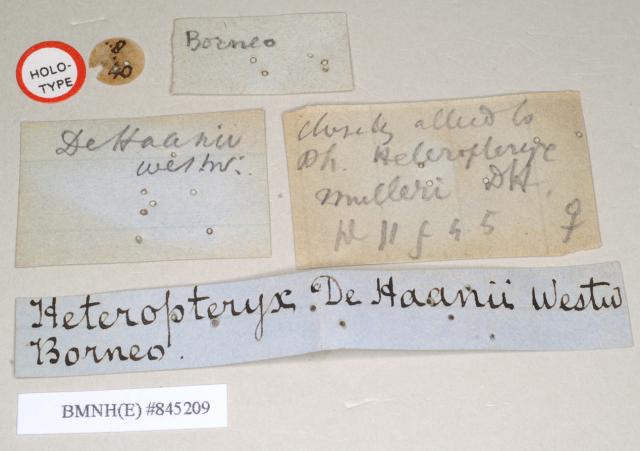 HOLO-
TYPE
8
40
Borneo
De Haanii
Westw:
closely allied to
Ph. Heteropteryx
mulleri DH.
pl 11 f 4 5 ♀
Heteropteryx De Haanii Westw
Borneo.
BMNH(E) #845209